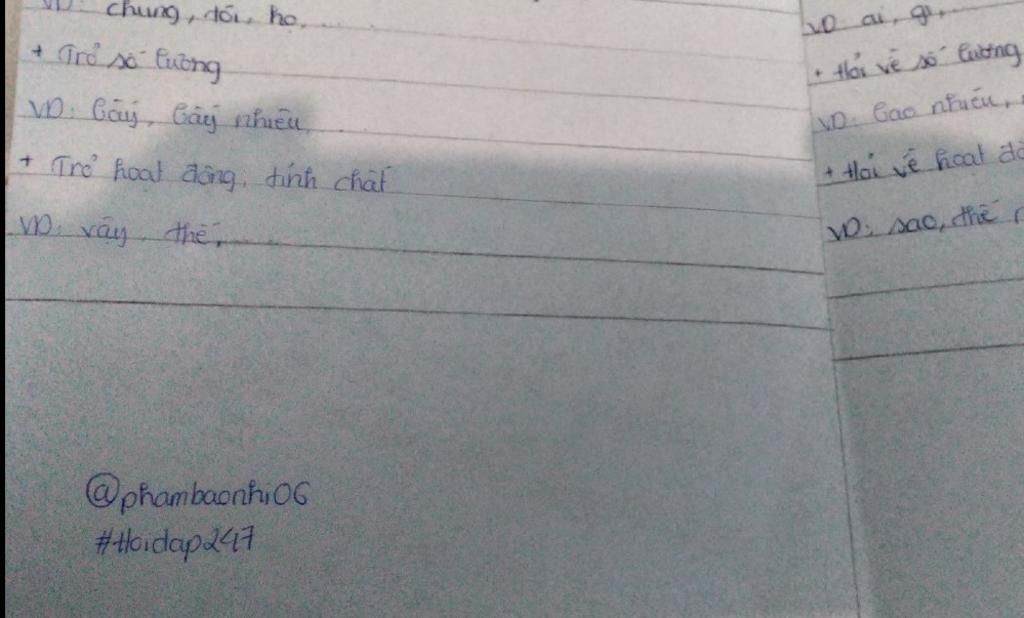 VD: chúng, tôi, họ,...
+ Trỏ số lượng
VD: Bấy, bấy nhiêu,...
+ Trỏ hoạt động, tính chất
VD: vậy, thế,.....
@phambaonhi06
#Hoidap247
VD: ai, gì,
+ Hỏi về số lượng
VD: Bao nhiêu,
+ Hỏi về hoạt
VD: sao, thế